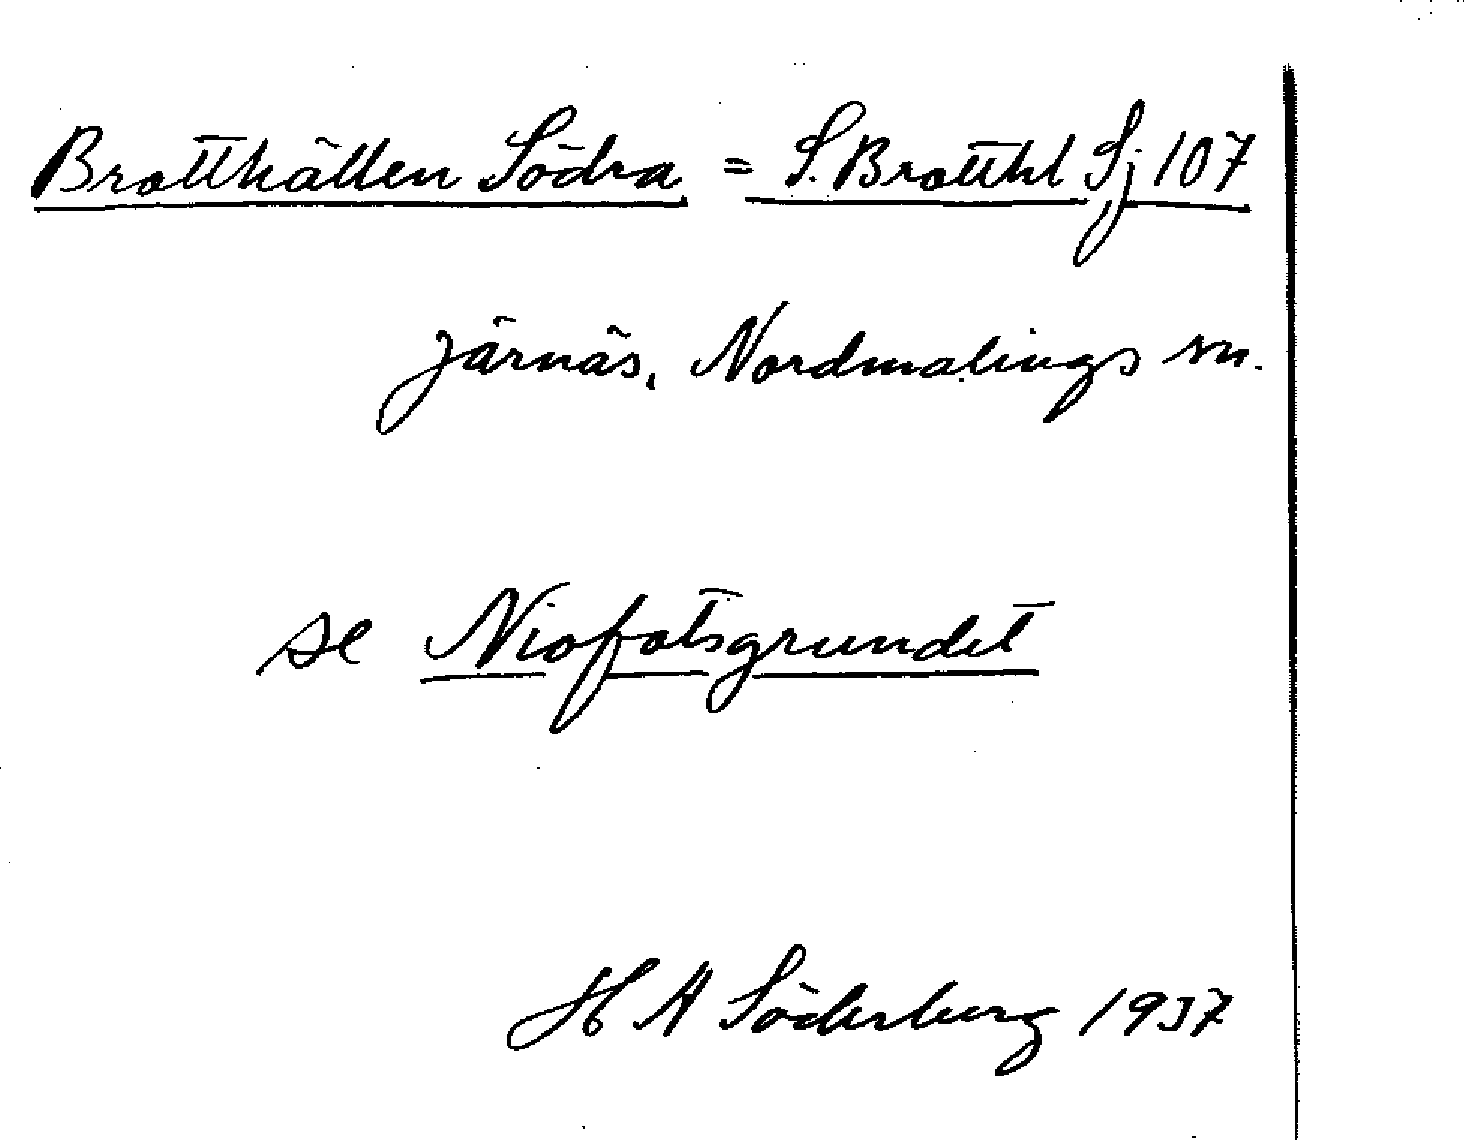 Brotthällen Södra = S. Brotthl Sj 107
Järnäs, Nordmalings sn.
se Niofotsgrundet
H A Söderberg 1937